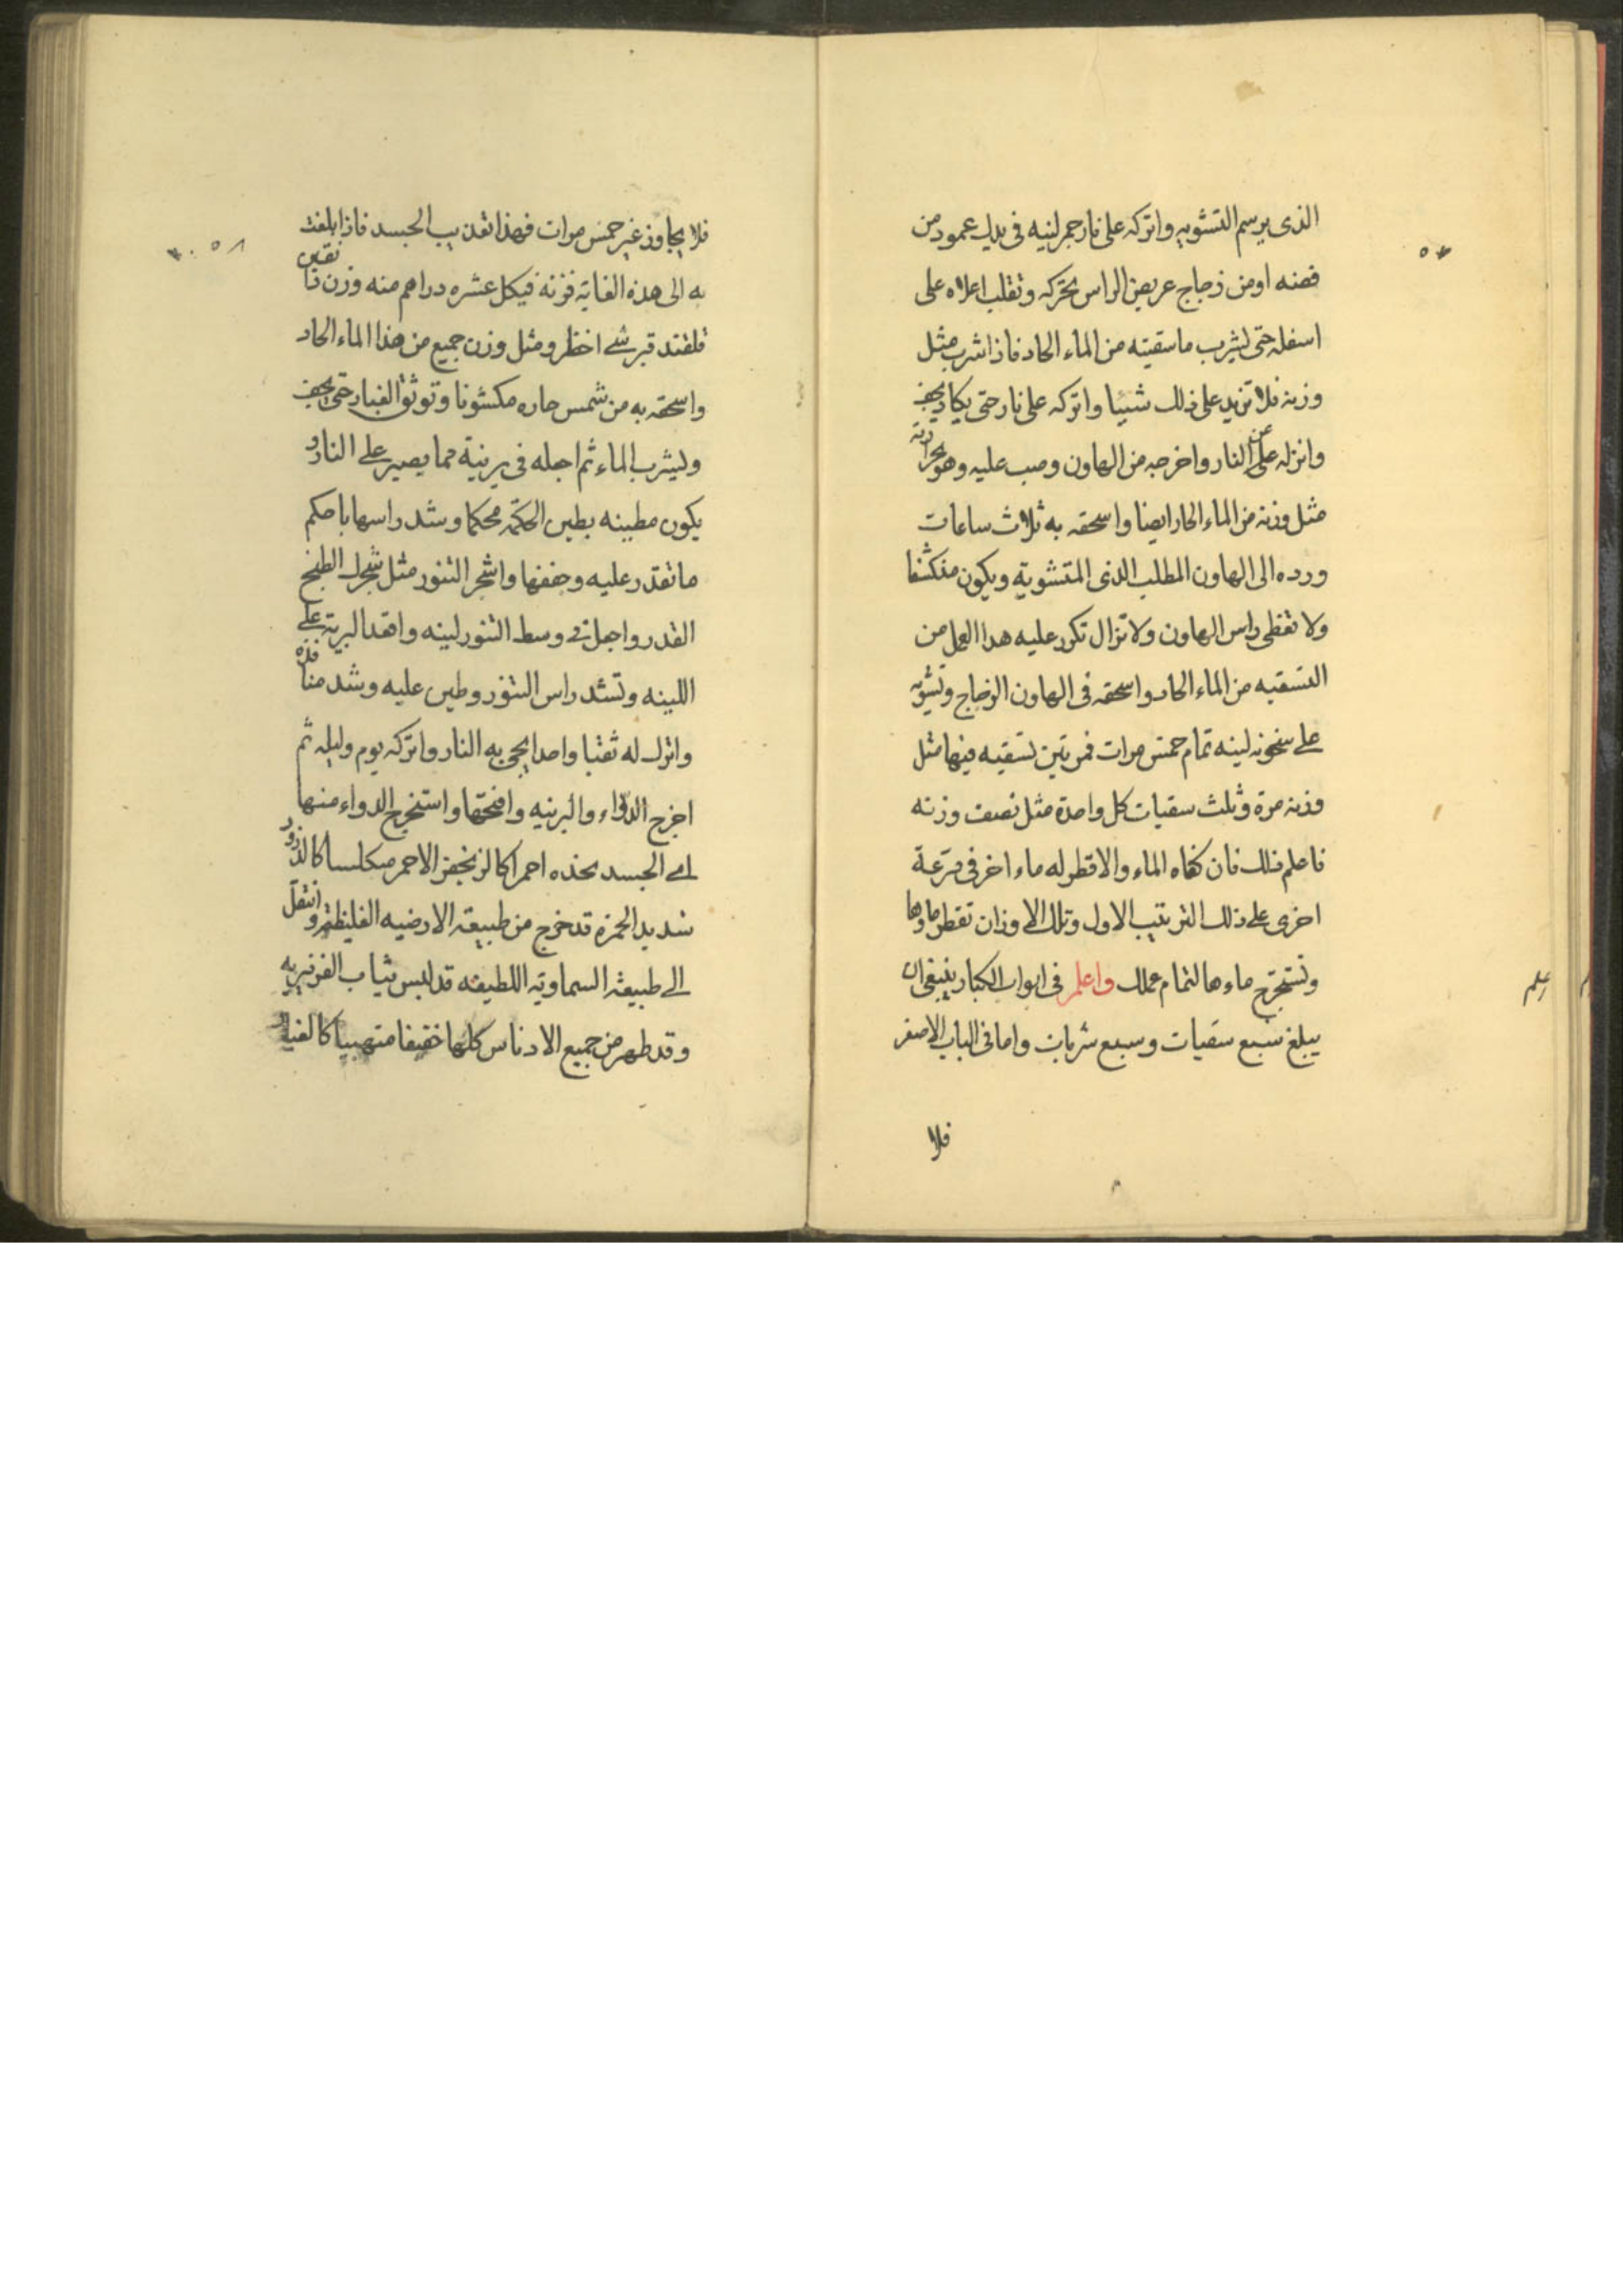 الذى يرسم التشويه واتركه على نار جمر لينه فى يدك عمود من
فضه او من زجاج عريض الراس تحركه وتقلب اعلاه على
اسفله حتى يشرب ما سقيته من الماء الحاد فاذا شرب مثل
وزنه فلا تزيد على ذلك شيئا واتركه على نار حتى يكاد يجف
وانزله عن على النار واخرجه من الهاون وصب عليه وهو بحرارته
مثل وزنه من الماء الحار ايضا واسحقه به ثلاث ساعات
ورده الى الهاون المطلب الذى المتشوية ويكون منكشفا
ولا تغطى راس الهاون ولا تزال تكرر عليه هدا العمل من
التسقيه من الماء الحاد واسحقه فى الهاون الزجاج وتشويه
على سخونه لينه تمام خمس مرات فمرتين تسقيه فيها مثل
وزنه مرة وثلث سقيات كل واحدة مثل نصف وزنه
فاعلم ذلك فان كفاه الماء والا قطر له ماء اخر فى قرعة
اخرى على ذلك الترتيب الاول وتلك الاوزان تقطر ماوها
وتستخرج ماءها لتمام عملك واعلم فى ابواب الكبار ينبغى ان
يبلغ سبع سقيات وسبع شربات واما فى الباب الاصفر
فلا
٥٧
اعلم
فلا يجاوز غير خمس مرات فهذا تعديب الجسد فاذا بلغت
به الى هذه الغاية فزنه فيكل عشره دراهم منه وزن
قلقند قبرسى اخظر ومثل وزن جميع من هذا الماء الحاد
واسحقه به من شمس حاره مكشوفا وتوثق الغبار حتى يجف
وليشرب الماء ثم اجعله فى برنية مما يصير على النار و
يكون مطينه بطين الحكمه محكما وشد راسها باحكم
ما تقدر عليه وجففها واشجر التنور مثل شجرك الطبخ
القدر واجعل فى وسط التنور لبنه واقعد البرنية على
اللبنه وتشد راس التنور وطين عليه وشد منافذه
واترك له ثقبا واحدا يجى به النار واتركه يوم وليله ثم
اخرج الدواء والبرنيه وافتحها واستخرج الدواء منها
اى الجسد تجذه احمرا كالزنجفر الاحمر مكلسا كالذرور
شديد الحمرة قد خرج من طبيعة الارضيه الغليظة وانتقل
الى طبيعة السماوية اللطيفه قد لبس ثياب الفرفيريه
وقد طهر من جميع الادناس كلها خفيفا متهبيا كالغبار
٥٨